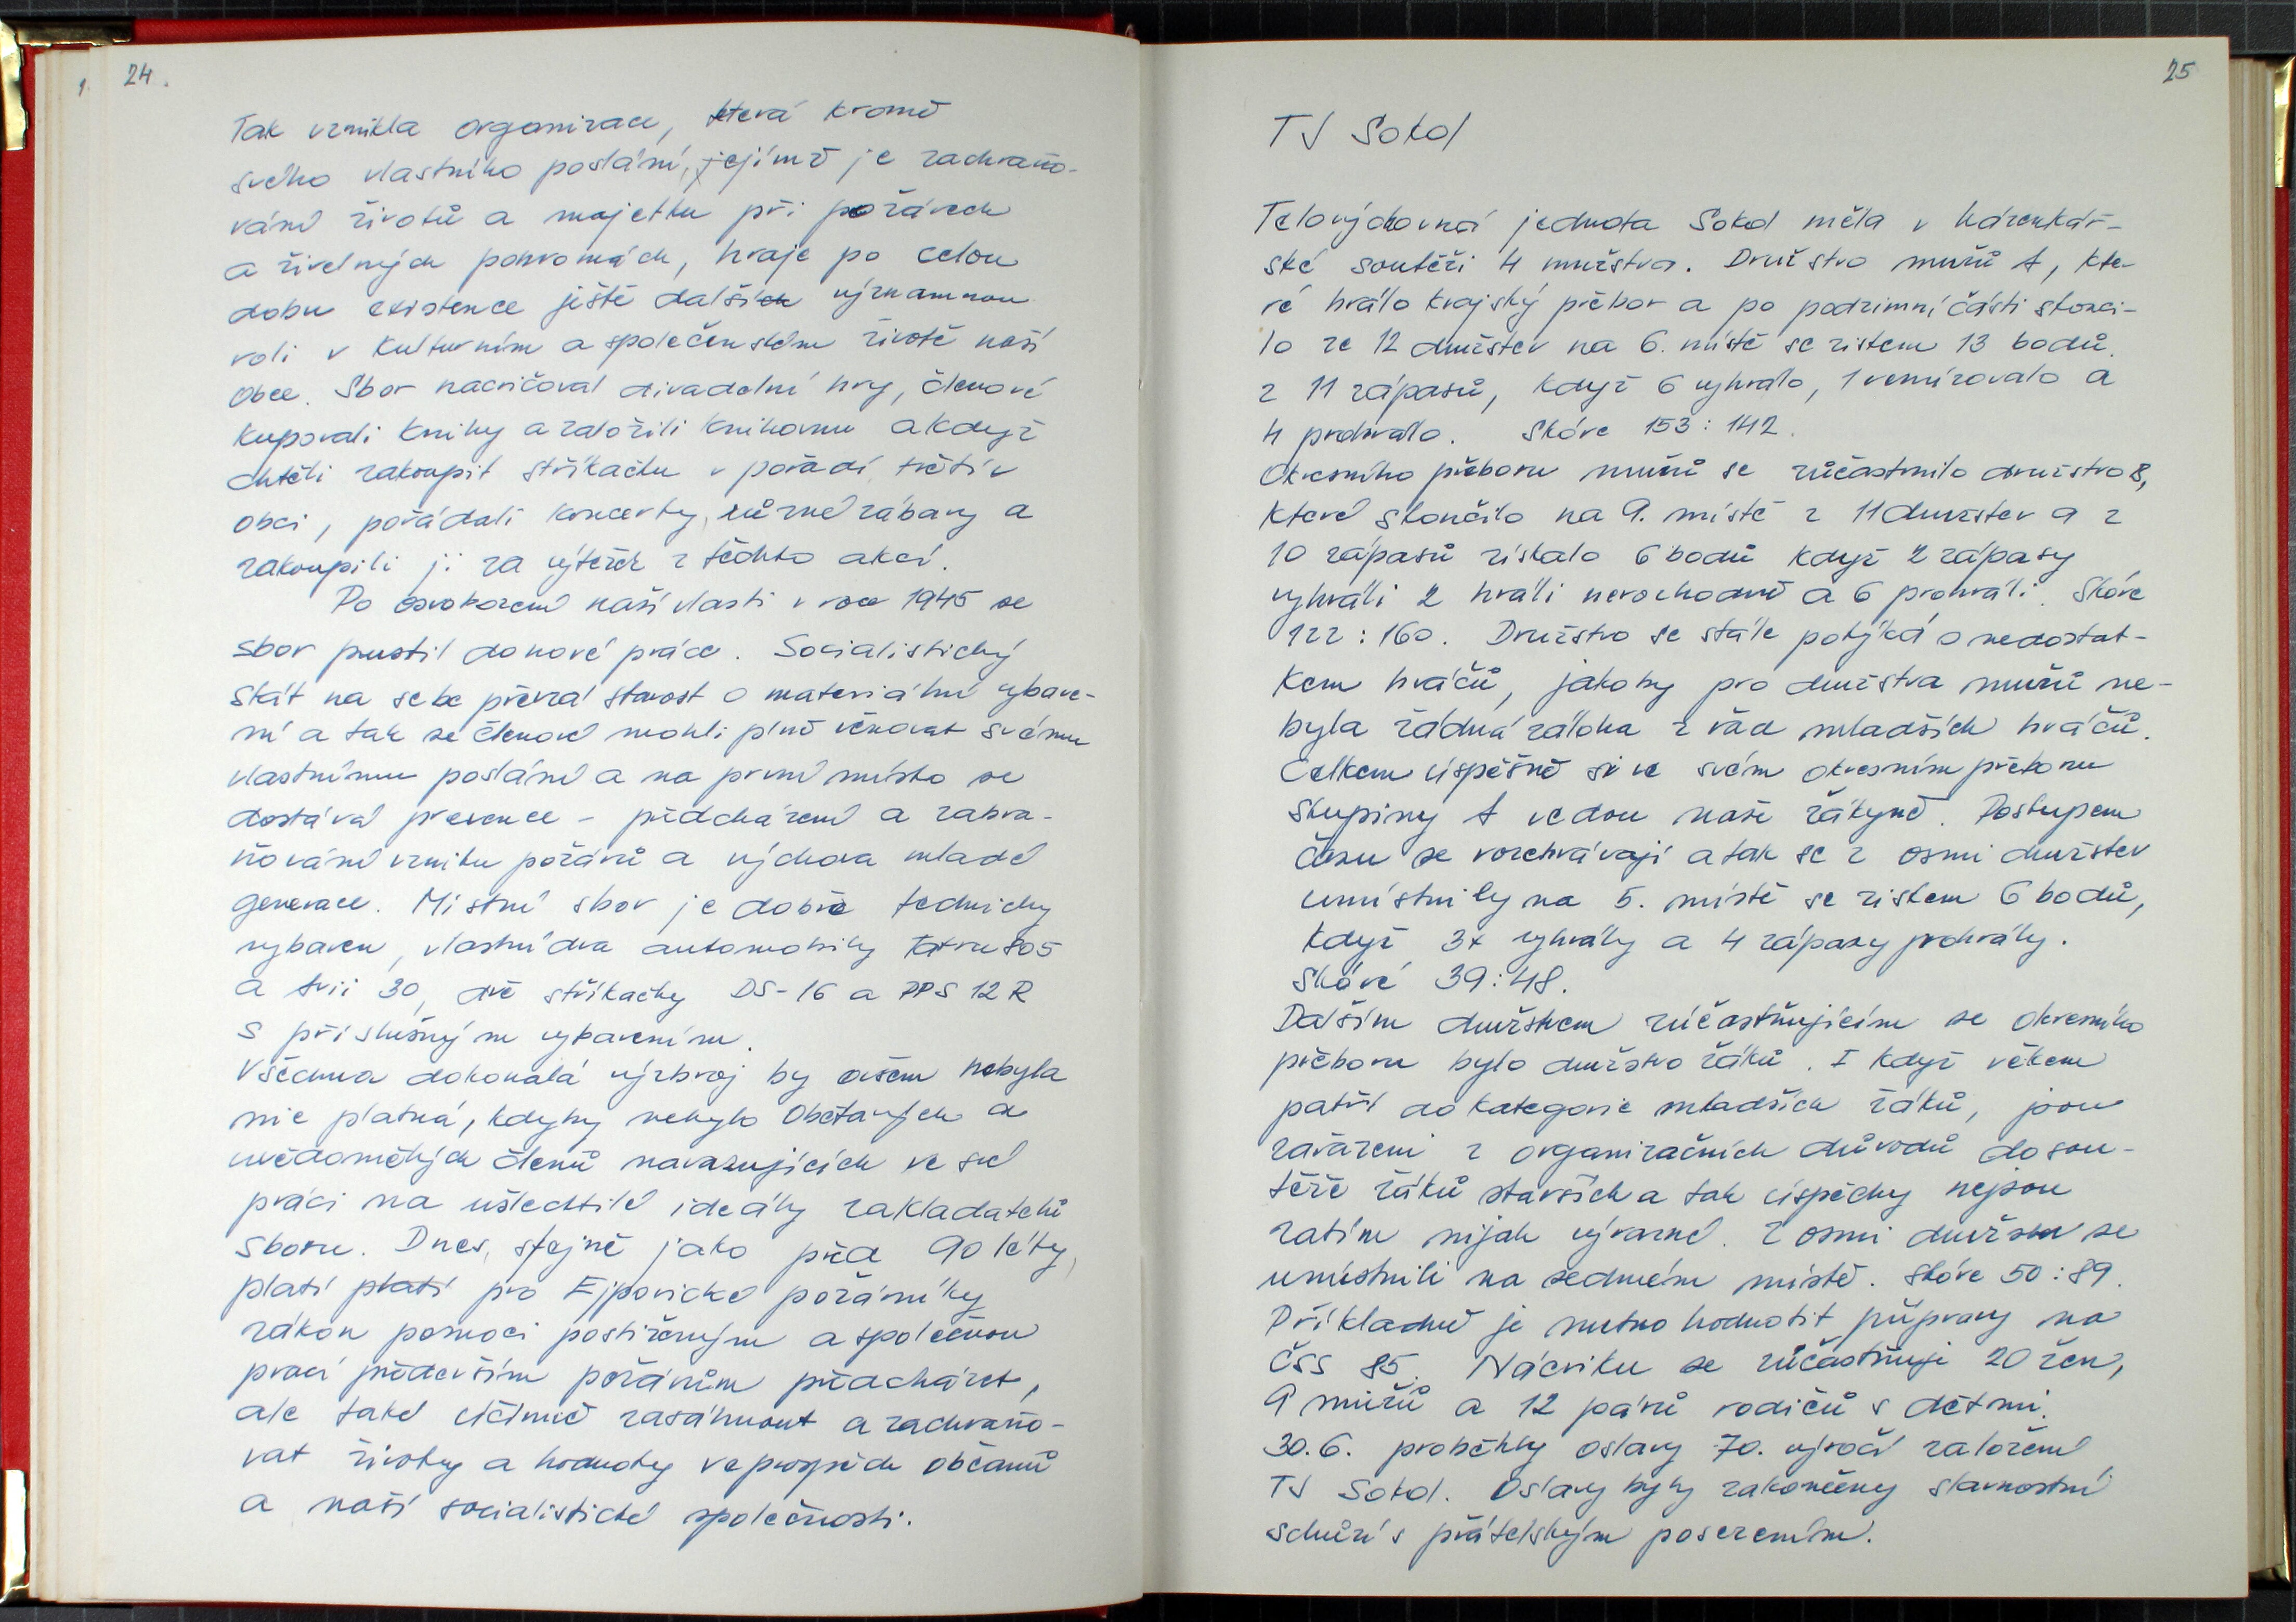 24.
Tak vznikla organizace, která kromě
svého vlastního poslání, jejímž je zachraňo-
vání životů a majetku při požárech
a živelných pohromách, hraje po celou
dobu existence ještě další významnou
roli v kulturním a společenském životě naší
obce. Sbor nacvičoval divadelní hry, členové
kupovali knihy a založili knihovnu a když
chtěli zakoupit stříkačku v pořadí třetí v
obci, pořádali koncerty, různé zábavy a
zakoupili ji za výtěžek z těchto akcí.
Po osvobození naší vlasti v roce 1945 se
sbor pustil do nové práce. Socialistický
stát na sebe převzal starost o materiální vybave-
ní a tak se členové mohli plně věnovat svému
vlastnímu poslání a na první místo se
dostával prevence - předcházení a zabra-
ňování vzniku požárů a výchova mladé
generace. Místní sbor je dobře technicky
vybaven, vlastní dva automobily Tatru 805
a Avii 30, dvě stříkačky DS-16 a PPS 12 R
s příslušným vybavením.
Všechna dokonalá výzbroj by ovšem nebyla
nic platná, kdyby nebylo obětavých a
uvědomělých členů navazujících ve své
práci na ušlechtilé ideály zakladatelů
sboru. Dnes, stejně jako před 90 léty,
platí platí pro Ejpovické požárníky
zákon pomoci postiženým a společnou
prací především požárům předcházet,
ale také účinně zasáhnout a zachraňo-
vat životy a hodnoty ve prospěch občanů
a naší socialistické společnosti.
25
TJ Sokol
Tělovýchovná jednota Sokol měla v házenkář-
ské soutěži 4 mužstva. Družstvo mužů A, kte-
ré hrálo krajský přebor a po podzimní části skonči-
lo ze 12 družstev na 6. místě se ziskem 13 bodů
z 11 zápasů, když 6 vyhrálo, 1 remizovalo a
4 prohrálo. Skóre 153 : 142.
Okresního přeboru mužů se zúčastnilo družstvo B,
které skončilo na 9. místě z 11 družstev a z
10 zápasů získalo 6 bodů když 2 zápasy
vyhráli 2 hráli nerozhodně a 6 prohráli. Skóre
122 : 160. Družstvo se stále potýká s nedostat-
kem hráčů, jakoby pro družstva mužů ne-
byla žádná záloha z řad mladších hráčů.
Celkem úspěšně si ve svém okresním přeboru
skupiny A vedou naše žákyně. Postupem
času se rozehrávají a tak se z osmi družstev
umístnily na 5. místě se ziskem 6 bodů,
když 3x vyhrály a 4 zápasy prohrály.
Skóre 39 : 48.
Dalším družstvem zúčastňujícím se okresního
přeboru bylo družstvo žáků. I když věkem
patří do kategorie mladších žáků, jsou
zařazeni z organizačních důvodů do sou-
těže žáků starších a tak úspěchy nejsou
zatím nijak výrazné. Z osmi družstev se
umístnili na sedmém místě. Skóre 50 : 89.
Příkladně je nutno hodnotit přípravy na
ČSS 85. Nácviku se zúčastňuje 20 žen,
9 mužů a 12 párů rodičů s dětmi.
30.6. proběhly oslavy 70. výročí založení
TJ Sokol. Oslavy byly zakončeny slavnostní
schůzí s přátelským posezením.